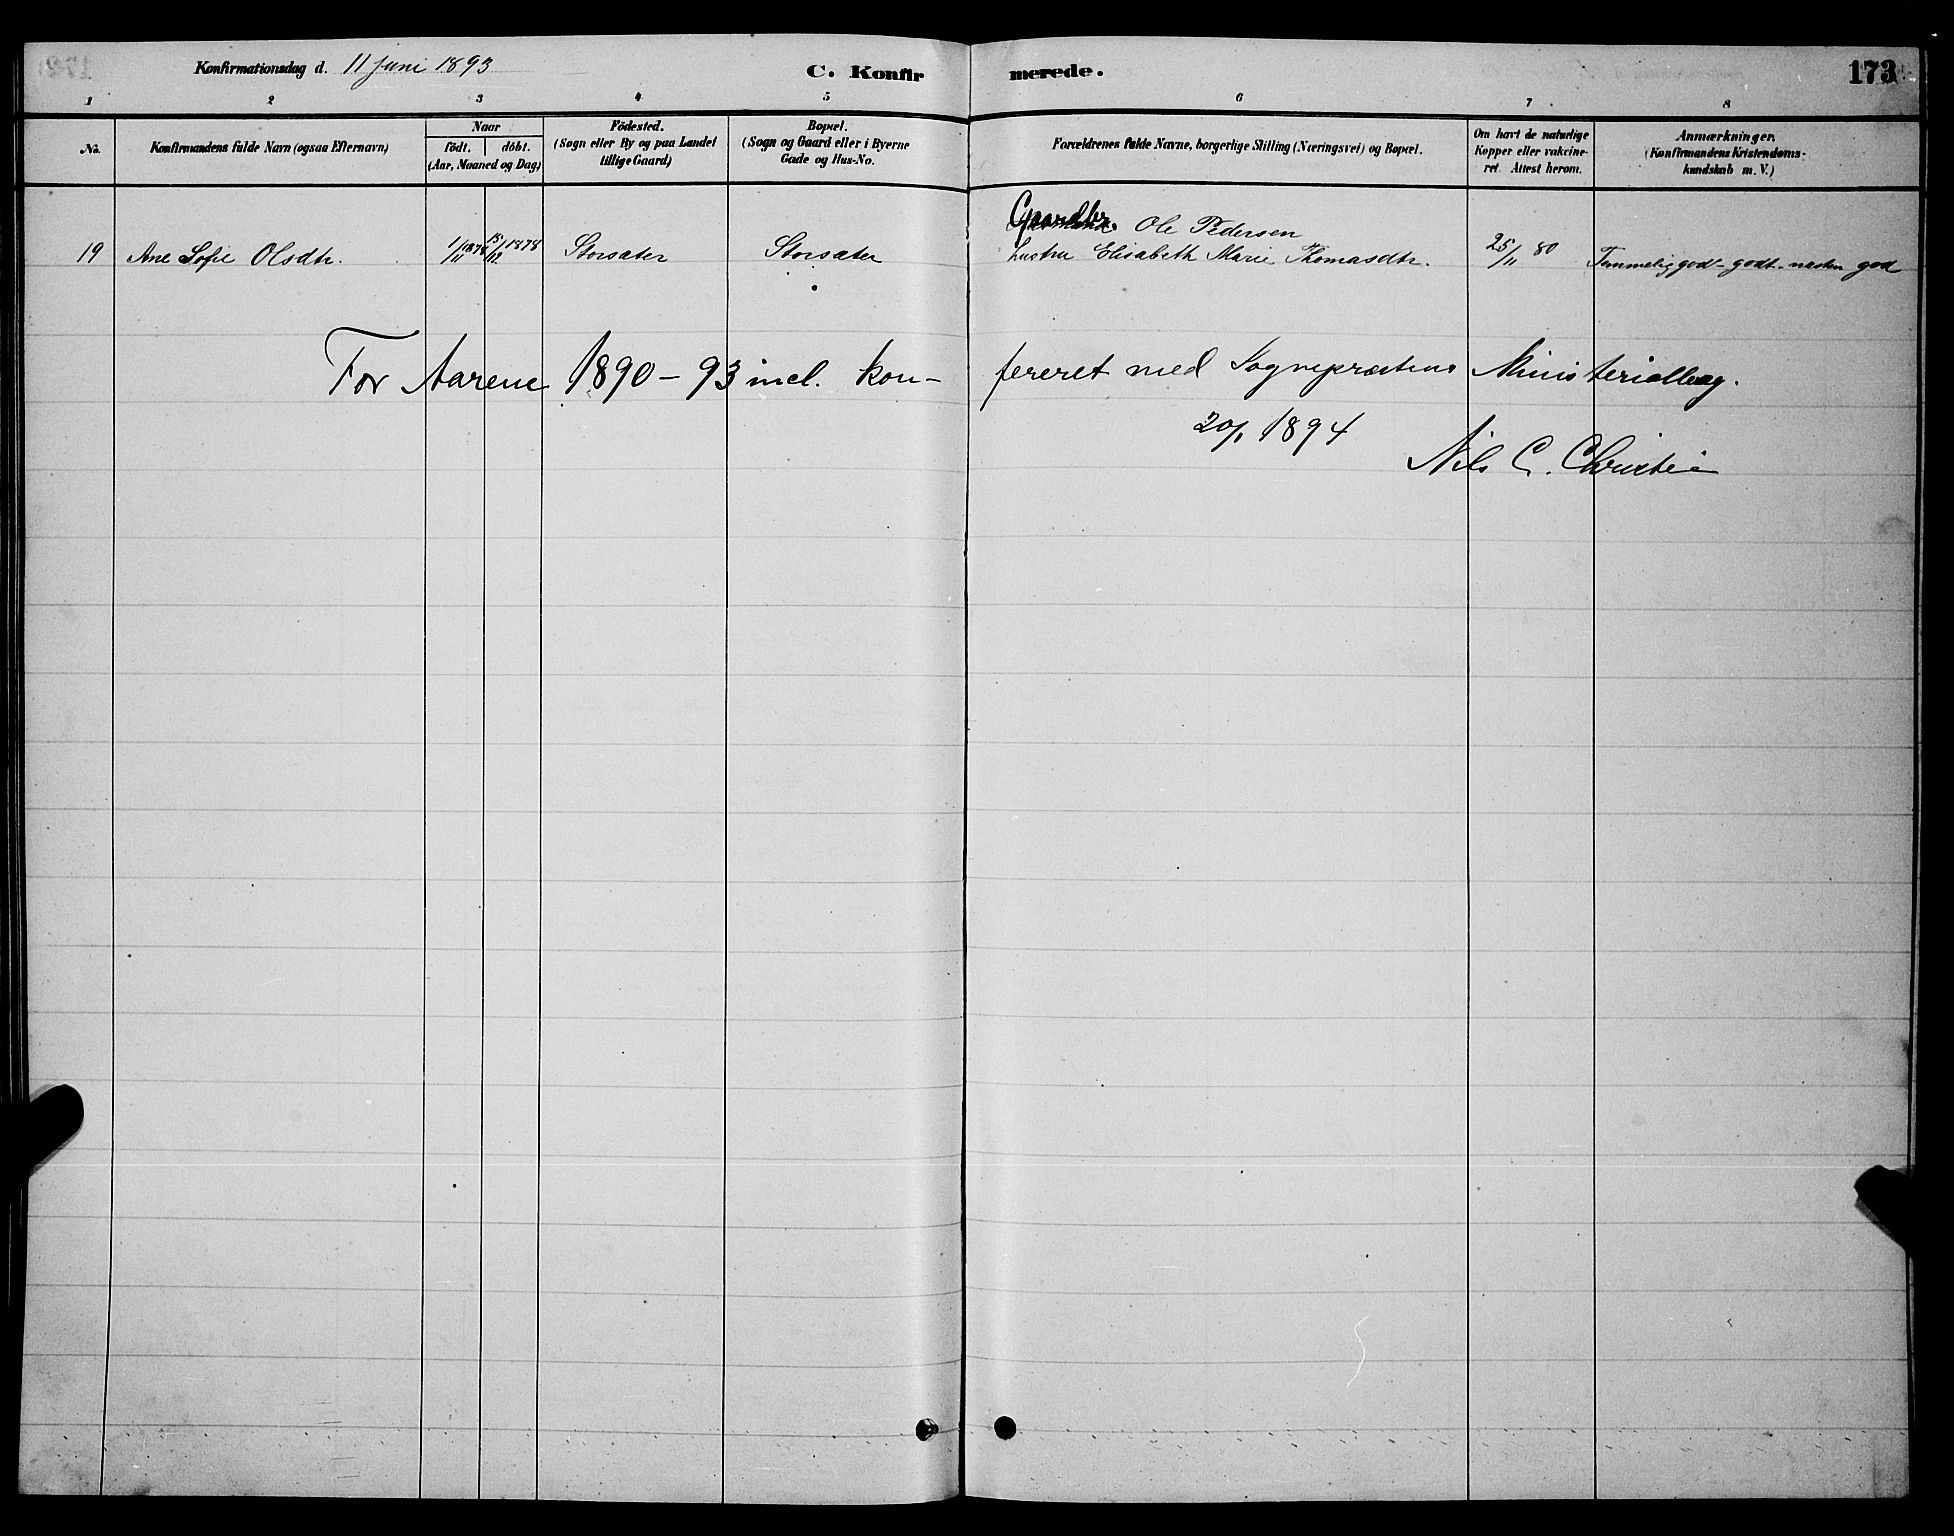 Konfirmationsdag d. 11 Juni 1893
C. Konfir merede.
173
1 2 3 4 5 6 7 8
No.
Konfirmandens fulde Navn (ogsaa Efternavn)
Naar
födt. döbt.
(Aar, Maaned og Dag)
Födested.
(Sogn eller By og paa Landet
tillige Gaard)
Bopæl.
(Sogn og Gaard eller i Byerne
Gade og Hus-No.
Forældrenes fulde Navne, borgerlige Stilling (Næringsvei) og Bopæl.
Om havt de naturlige
Kopper eller vakcine-
ret. Attest herom.
Anmærkninger.
(Konfirmandens Kristendoms-
kundskab m. V.)
Gaardbr. Ole Pedersen
19 Ane Sofie Olsdtr. 1/11 1878 15/12 1878 Storsæter Storsæter Hustru Elisabeth Marie Thomasdtr. 25/11 80 Temmelig god - godt - næsten god
For Aarene 1890-93 incl. kon- fereret med Sognepræstens Ministerialbog.
20/1 1894
Nils C. Christie